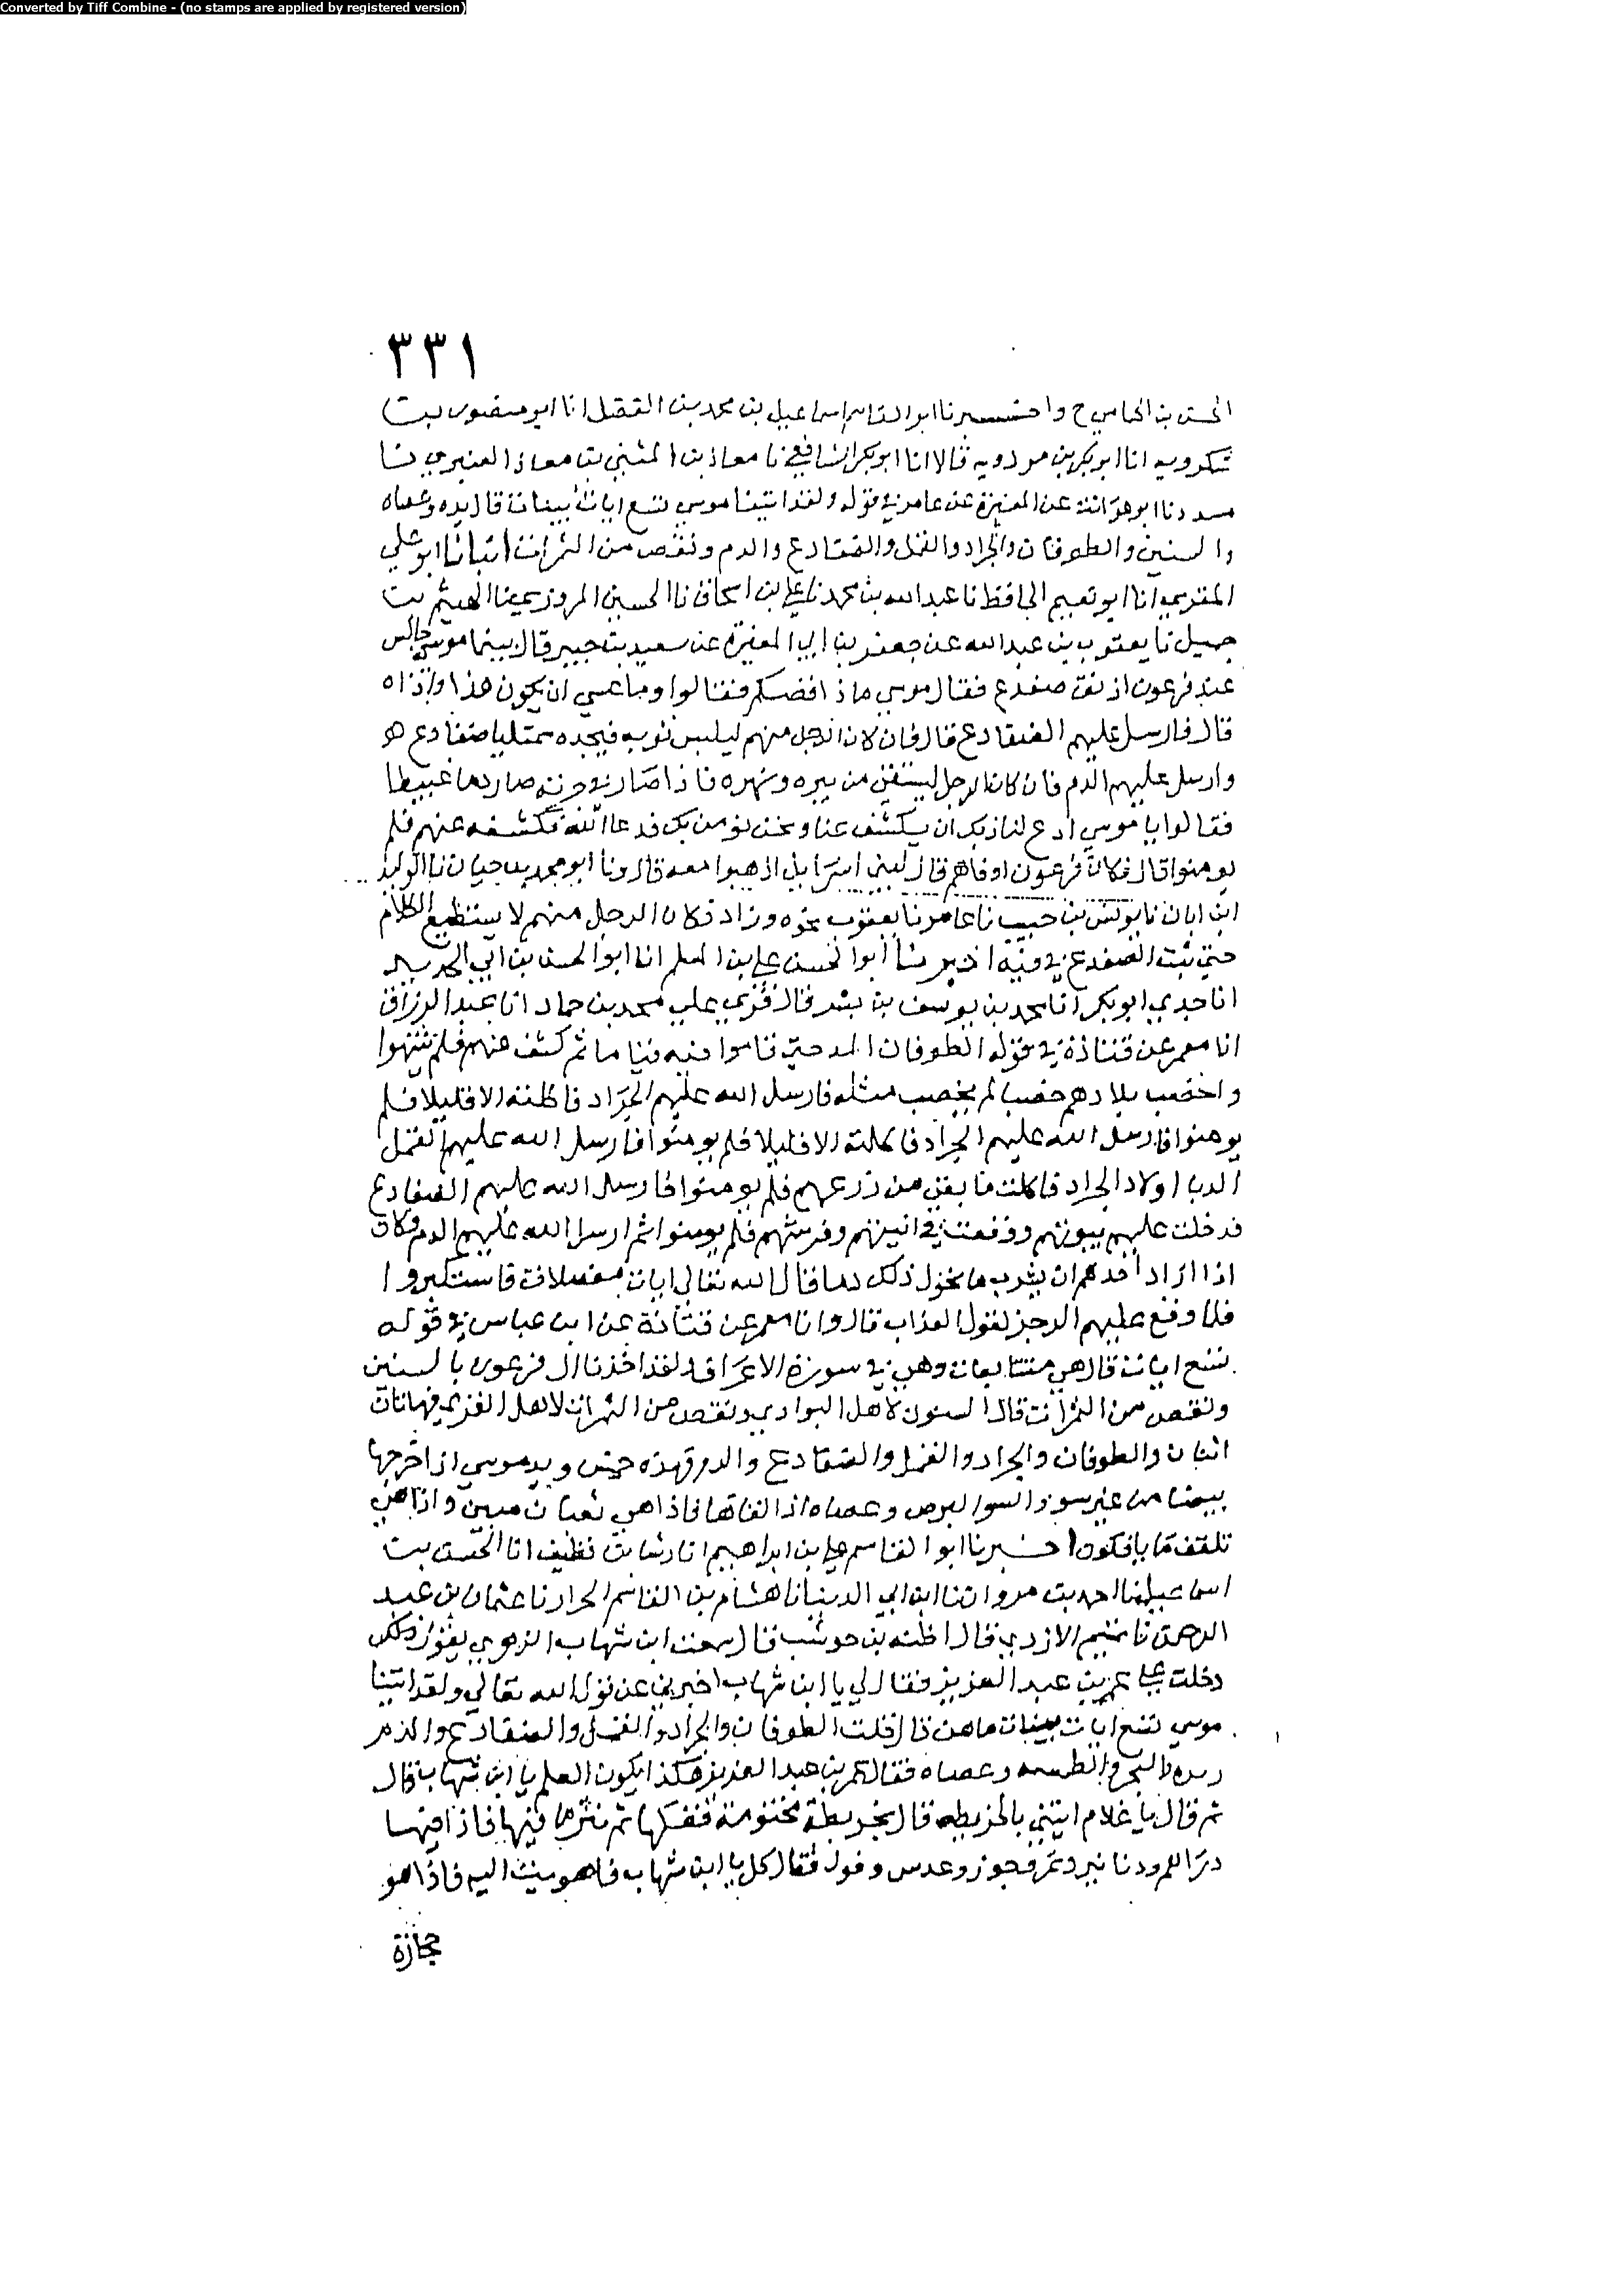 Converted by Tiff Combine - (no stamps are applied by registered version)
٣٣١
الحسن بن الحامي ح واخبرنا ابو القاسم اسماعيل بن محمد بن الفضل انا ابو منصور بن
شكرويه انا ابو بكر بن مردويه قالا انا ابو بكر الشافعي نا معاذ بن المثني بن معاذ العنبري نا
مسدد نا ابو عوانة عن المغيرة عن عامر في قوله ولقد اتينا موسي تسع ايات بينات قال يده وعصاه
والسنين والطوفان والجراد والقمل والضفادع والدم ونقص من الثمرات انبانا ابو علي
المقري انا ابو نعيم الحافظ نا عبد الله بن محمد نا علي بن اسحاق نا الحسين المروزي نا الهيثم بن
جميل نا يعقوب بن عبد الله عن جعفر بن ابي المغيرة عن سعيد بن جبير قال بينما موسي جالس
عند فرعون اذ نق ضفدع فقال موسي ماذا افضكم فقالوا وما عسي ان يكون هذا واذاه
قال فارسل عليهم الضفادع قال فان كان الرجل منهم ليلبس ثوبه فيجده ممتليا ضفادع هو
وارسل عليهم الدم فان كان الرجل ليستقي من بيره ونهره فاذا صار في جرته صار دما عبيطا
فقالوا يا موسي ادع لنا ربك ان يكشف عنا ونحن نومن بك فدعا الله فكشفه عنهم فلم
يومنوا قال فكان فرعون اوفاهم قال لبني اسرايل اذهبوا معه قال ونا ابو محمد بن حيان نا الوليد
ابن ابان نا يونس بن حبيب نا عامر نا يعقوب نحوه وزاد فكان الرجل منهم لا يستطيع الكلام
حتي يثب الضفدع في فيه اخبرنا ابو الحسن علي بن المسلم انا ابو الحسن بن ابي الحديد
انا جدي ابو بكر انا محمد بن يوسف بن بشر قال قري علي محمد بن حماد انا عبد الرزاق
انا معمر عن قتادة في قوله الطوفان المد حتي قاموا فيه قياما ثم كشف عنهم فلم ينتهوا
واخصب بلادهم خصبا لم يخصب مثله فارسل الله عليهم الجراد فاكلته الا قليلا فلم
يومنوا فارسل الله عليهم الجراد فاكلته الا قليلا فلم يومنوا فارسل الله عليهم القمل
الدبا اولاد الجراد فاكلت ما بقي من زرعهم فلم يومنوا فارسل الله عليهم الضفادع
فدخلت عليهم بيوتهم ووقعت في انيتهم وفرشهم فلم يومنوا ثم ارسل الله عليهم الدم فكان
اذا اراد احدهم ان يشرب ما تحول ذلك دما قال الله تعالي ايات مفصلات فاستكبروا
فلما وقع عليهم الرجز يقول العذاب قال وانا معمر عن قتادة عن ابن عباس في قوله
تسع ايات قال هي متتابعات وهي في سورة الاعراف ولقد اخذنا ال فرعون بالسنين
ونقص من الثمرات قال السنون لاهل البوادي ونقص من الثمرات لاهل القري فهاتان
اثنان والطوفان والجراد والقمل والضفادع والدم فهذه خمس ويد موسي اذ اخرجها
بيضا من غير سوء والسوا البرص وعصاه اذ القاها فاذا هي ثعبان مبين واذا هي
تلقف ما يافكون اخبرنا ابو القاسم علي بن ابراهيم انا رشا بن نظيف انا الحسن بن
اسماعيل نا احمد بن مروان نا ابن ابي الدنيا نا هشام بن القاسم الحرار نا عثمان بن عبد
الرحمن نا الازدي قال بن حوشب قال سمعت ابن شهاب الزهري يقول
دخلت علي عمر بن عبد العزيز فقال لي يا ابن شهاب اخبرني عن قول الله تعالي ولقد اتينا
موسي تسع ايات بينات ما هن قال قلت الطوفان والجراد والقمل والضفادع والدم
ويده والبحر والطمسه وعصاه فقال عمر بن عبد العزيز هكذا يكون العلم يا ابن شهاب قال
ثم قال يا غلام ايتني بالخريطه قال بخريطة مختومة ففكها ثم نثر ما فيها فاذا فيها
دراهم ودنانير وتمر وجوز وعدس وفول فقال كل يا ابن شهاب فاهويت اليه فاذا هو
حجارة